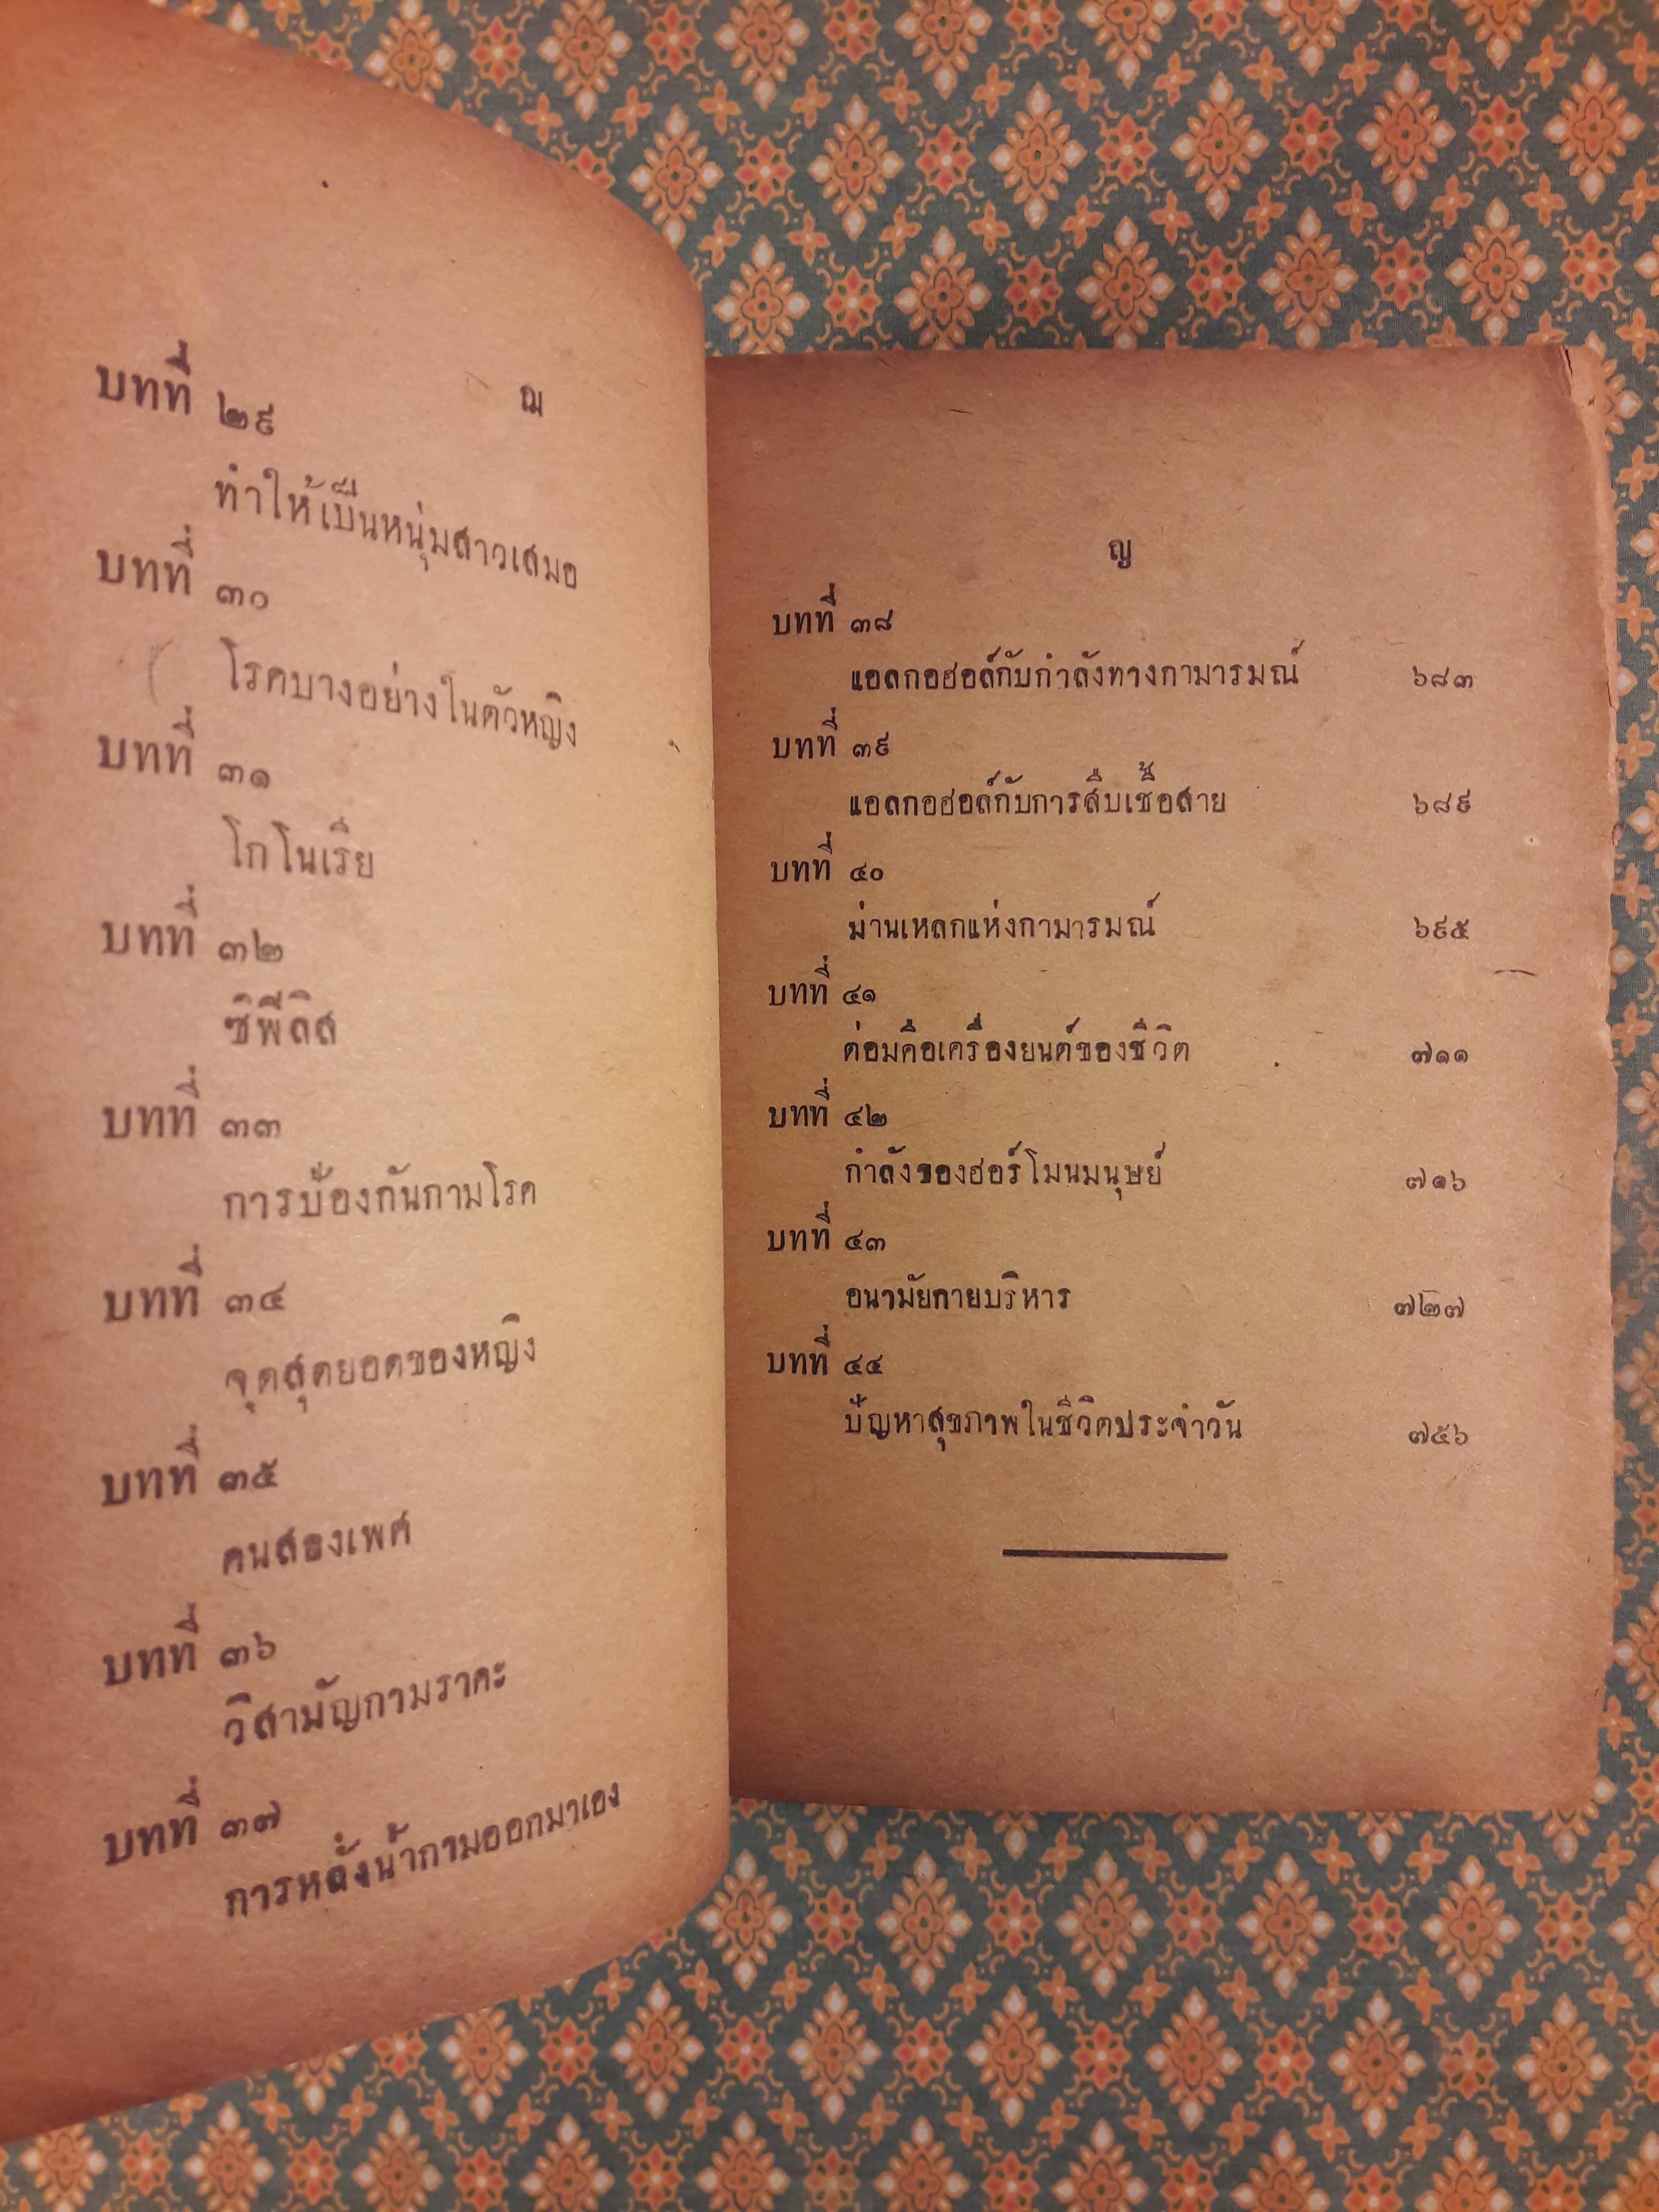 ฌ
บทที่ ๒๙
ทำให้เป็นหนุ่มสาวเสมอ
บทที่ ๓๐
โรคบางอย่างในตัวหญิง
บทที่ ๓๑
โกโนเรีย
บทที่ ๓๒
ซิฟิลิส
บทที่ ๓๓
การป้องกันกามโรค
บทที่ ๓๔
จุดสุดยอดของหญิง
บทที่ ๓๕
คนสองเพศ
บทที่ ๓๖
วิสามัญกามราคะ
บทที่ ๓๗
การหลั่งน้ำกามออกมาเอง
ญ
บทที่ ๓๘
แอลกอฮอล์กับกำลังทางกามารมณ์ ๖๘๓
บทที่ ๓๙
แอลกอฮอล์กับการสืบเชื้อสาย ๖๘๙
บทที่ ๔๐
ม่านเหล็กแห่งกามารมณ์ ๖๙๕
บทที่ ๔๑
ต่อมคือเครื่องยนต์ของชีวิต ๗๑๑
บทที่ ๔๒
กำลังของฮอร์โมนมนุษย์ ๗๑๖
บทที่ ๔๓
อนามัยกายบริหาร ๗๒๗
บทที่ ๔๔
ปัญหาสุขภาพในชีวิตประจำวัน ๗๕๖